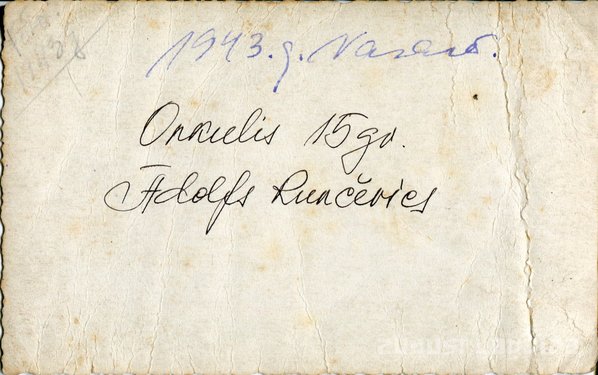 1943. g. Vasarā.
Onkulis 15 gv.
Adolfs Runčevics